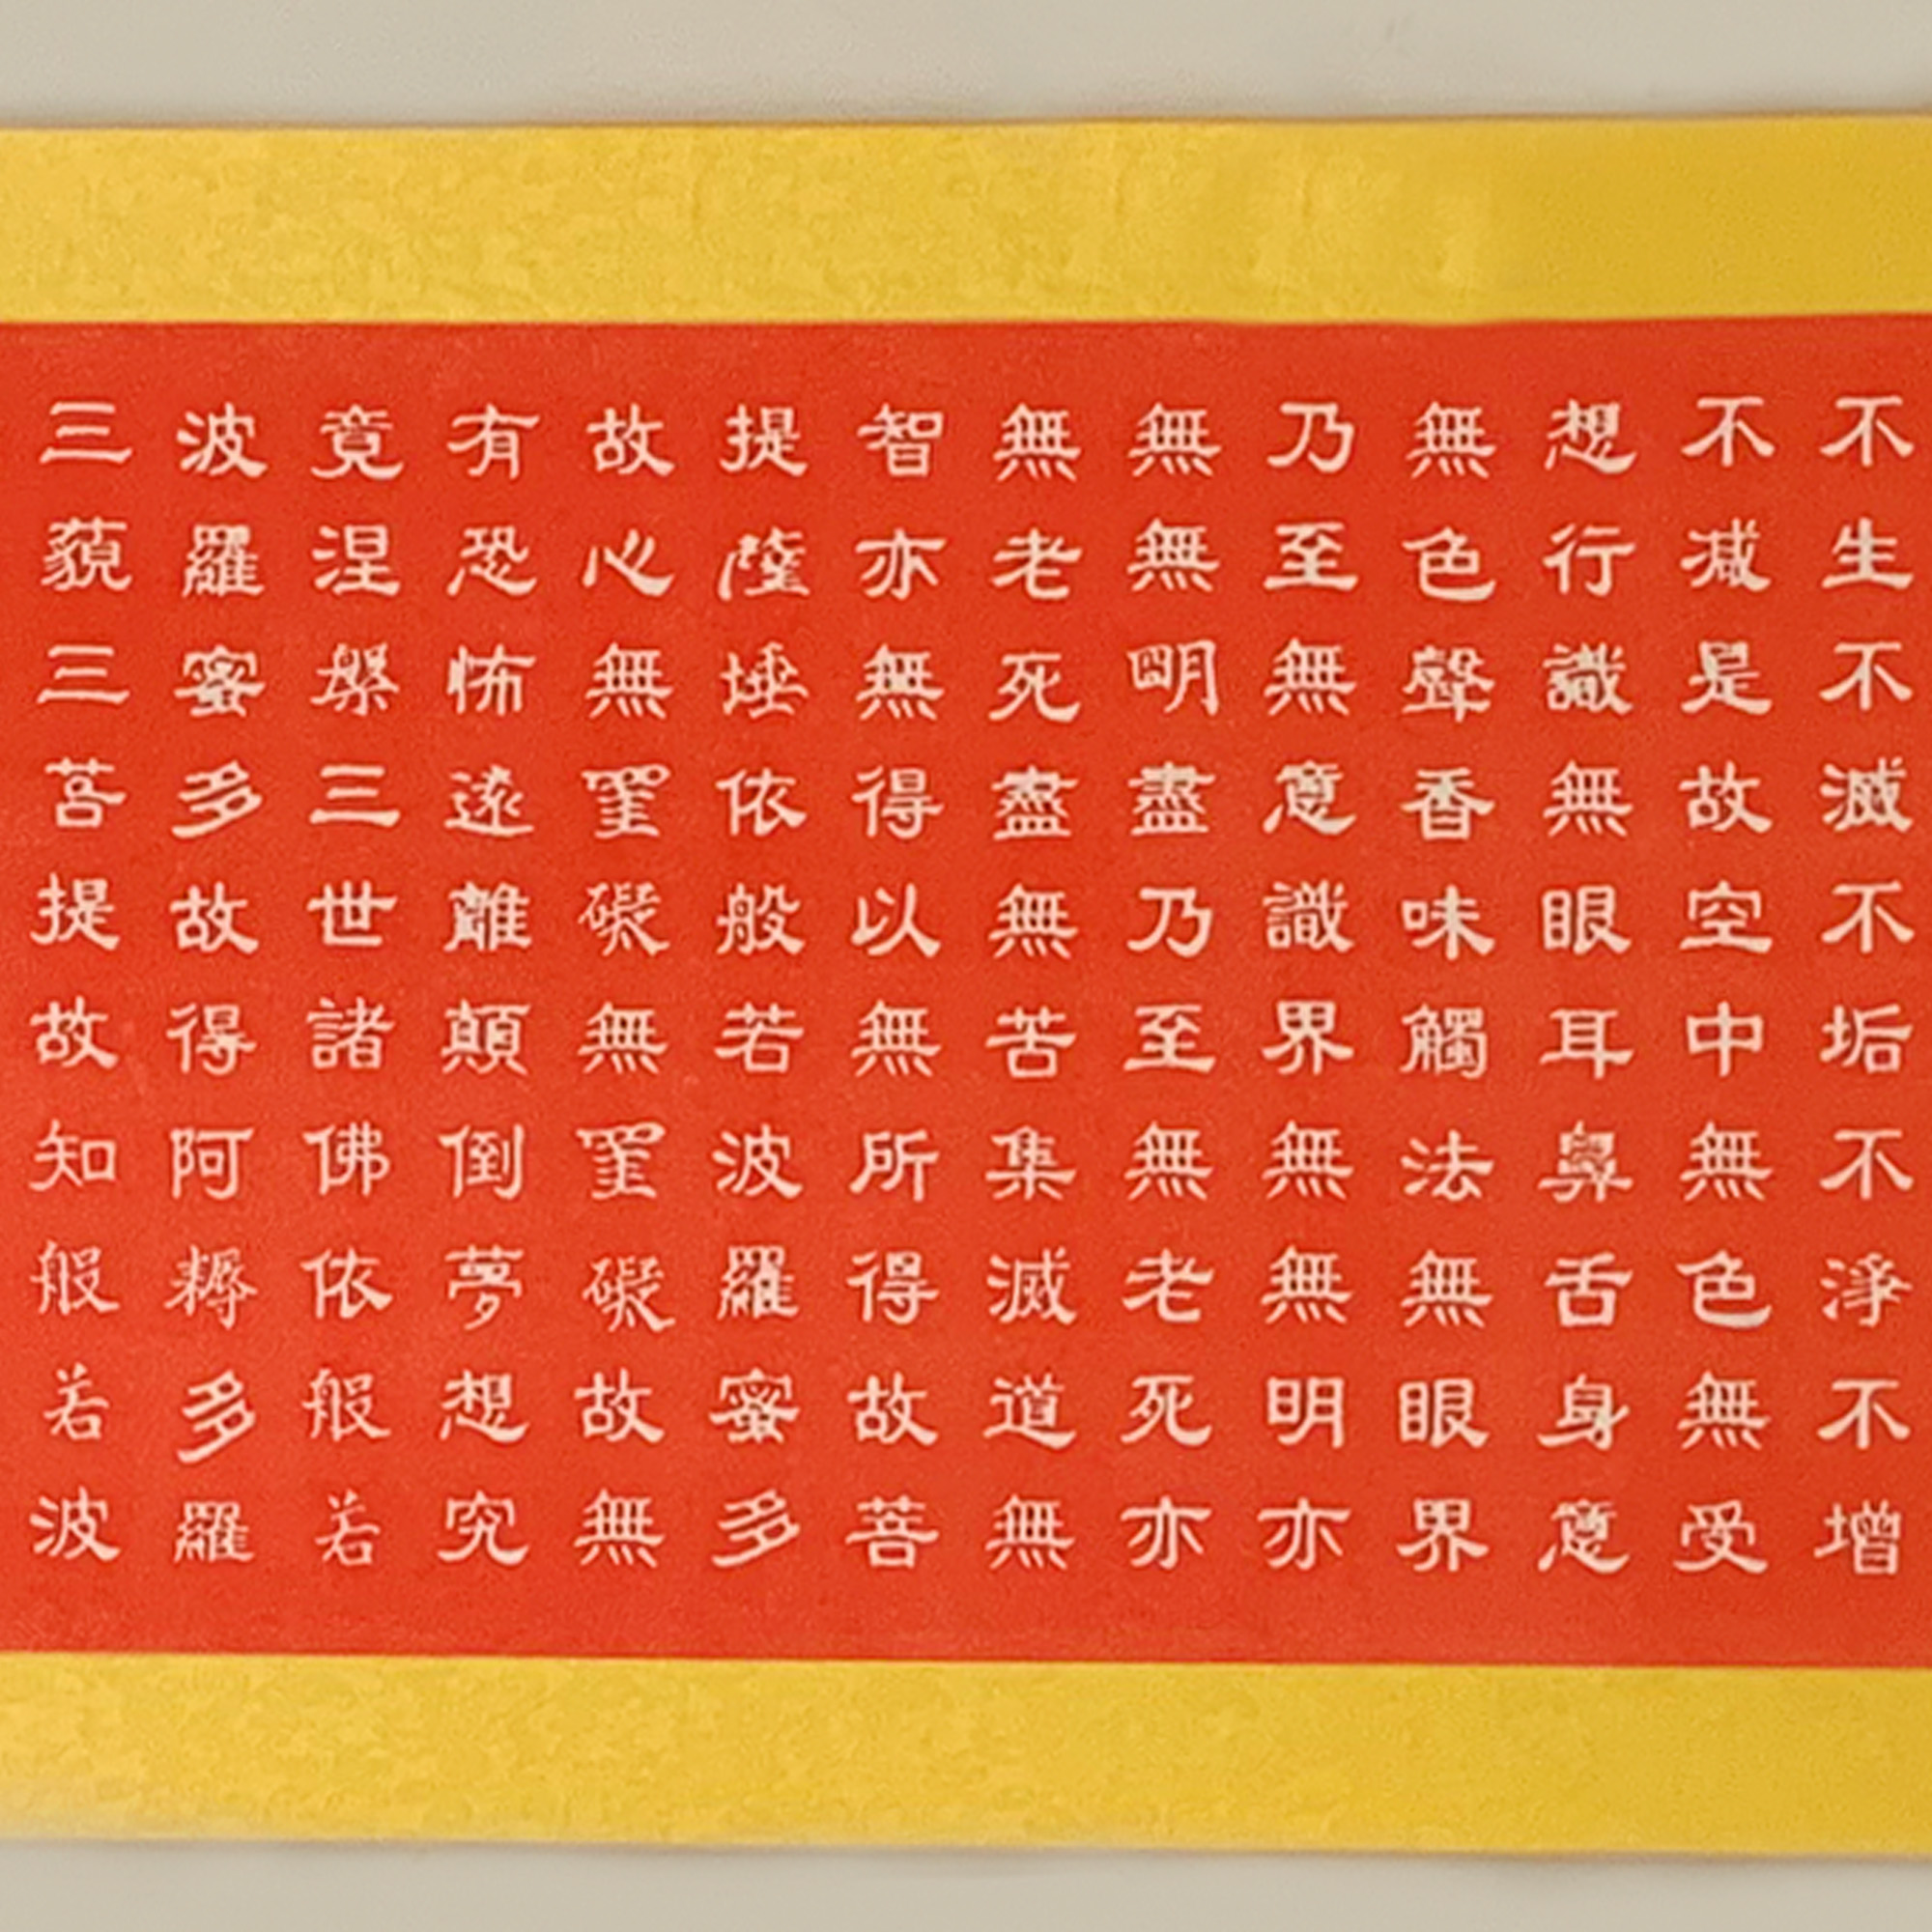 不生不滅不垢不淨不增
不減是故空中無色無受
想行識無眼耳鼻舌身意
無色聲香味觸法無眼界
乃至無意識界無無明亦
無無明盡乃至無老死亦
無老死盡無苦集滅道無
智亦無得以無所得故菩
提薩埵依般若波羅蜜多
故心無罣礙無罣礙故無
有恐怖遠離顛倒夢想究
竟涅槃三世諸佛依般若
波羅蜜多故得阿耨多羅
三藐三菩提故知般若波